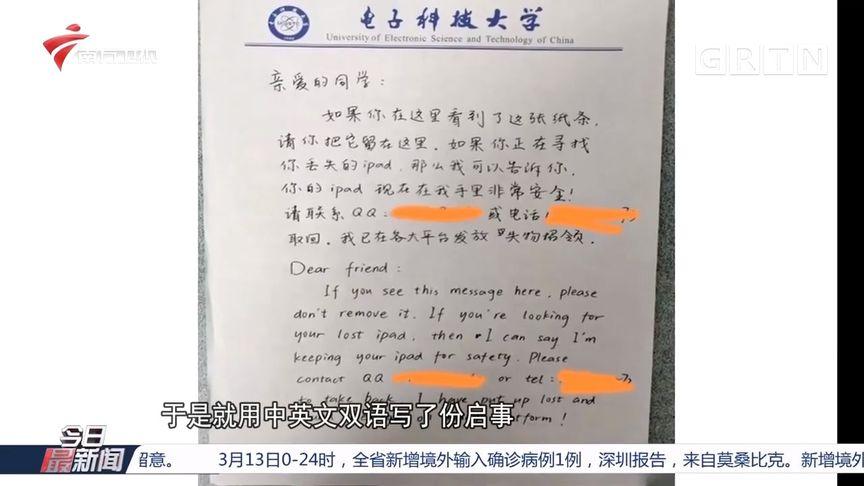 广东广播电视
GRTN
电子科技大学
University of Electronic Science and Technology of China
亲爱的同学：
如果你在这里看到了这张纸条，
请你把它留在这里。如果你正在寻找
你丢失的ipad，那么我可以告诉你，
你的ipad 现在在我手里非常安全！
请联系QQ： 或电话：
取回。我已在各大平台发放失物招领。
Dear friend:
If you see this message here, please
don't remove it. If you're looking for
your lost ipad, then I can say I'm
keeping your ipad for safety. Please
contact QQ or tel:
to take back. I have put up lost and
platform!
于是就用中英文双语写了份启事
今日最新闻
留意。 3月13日0-24时，全省新增境外输入确诊病例1例，深圳报告，来自莫桑比克。新增境外